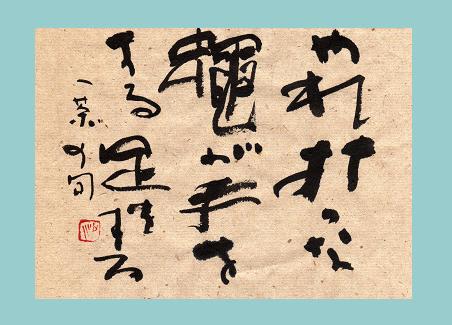 やれ打つな
蠅が手を
する足をする
一茶の句